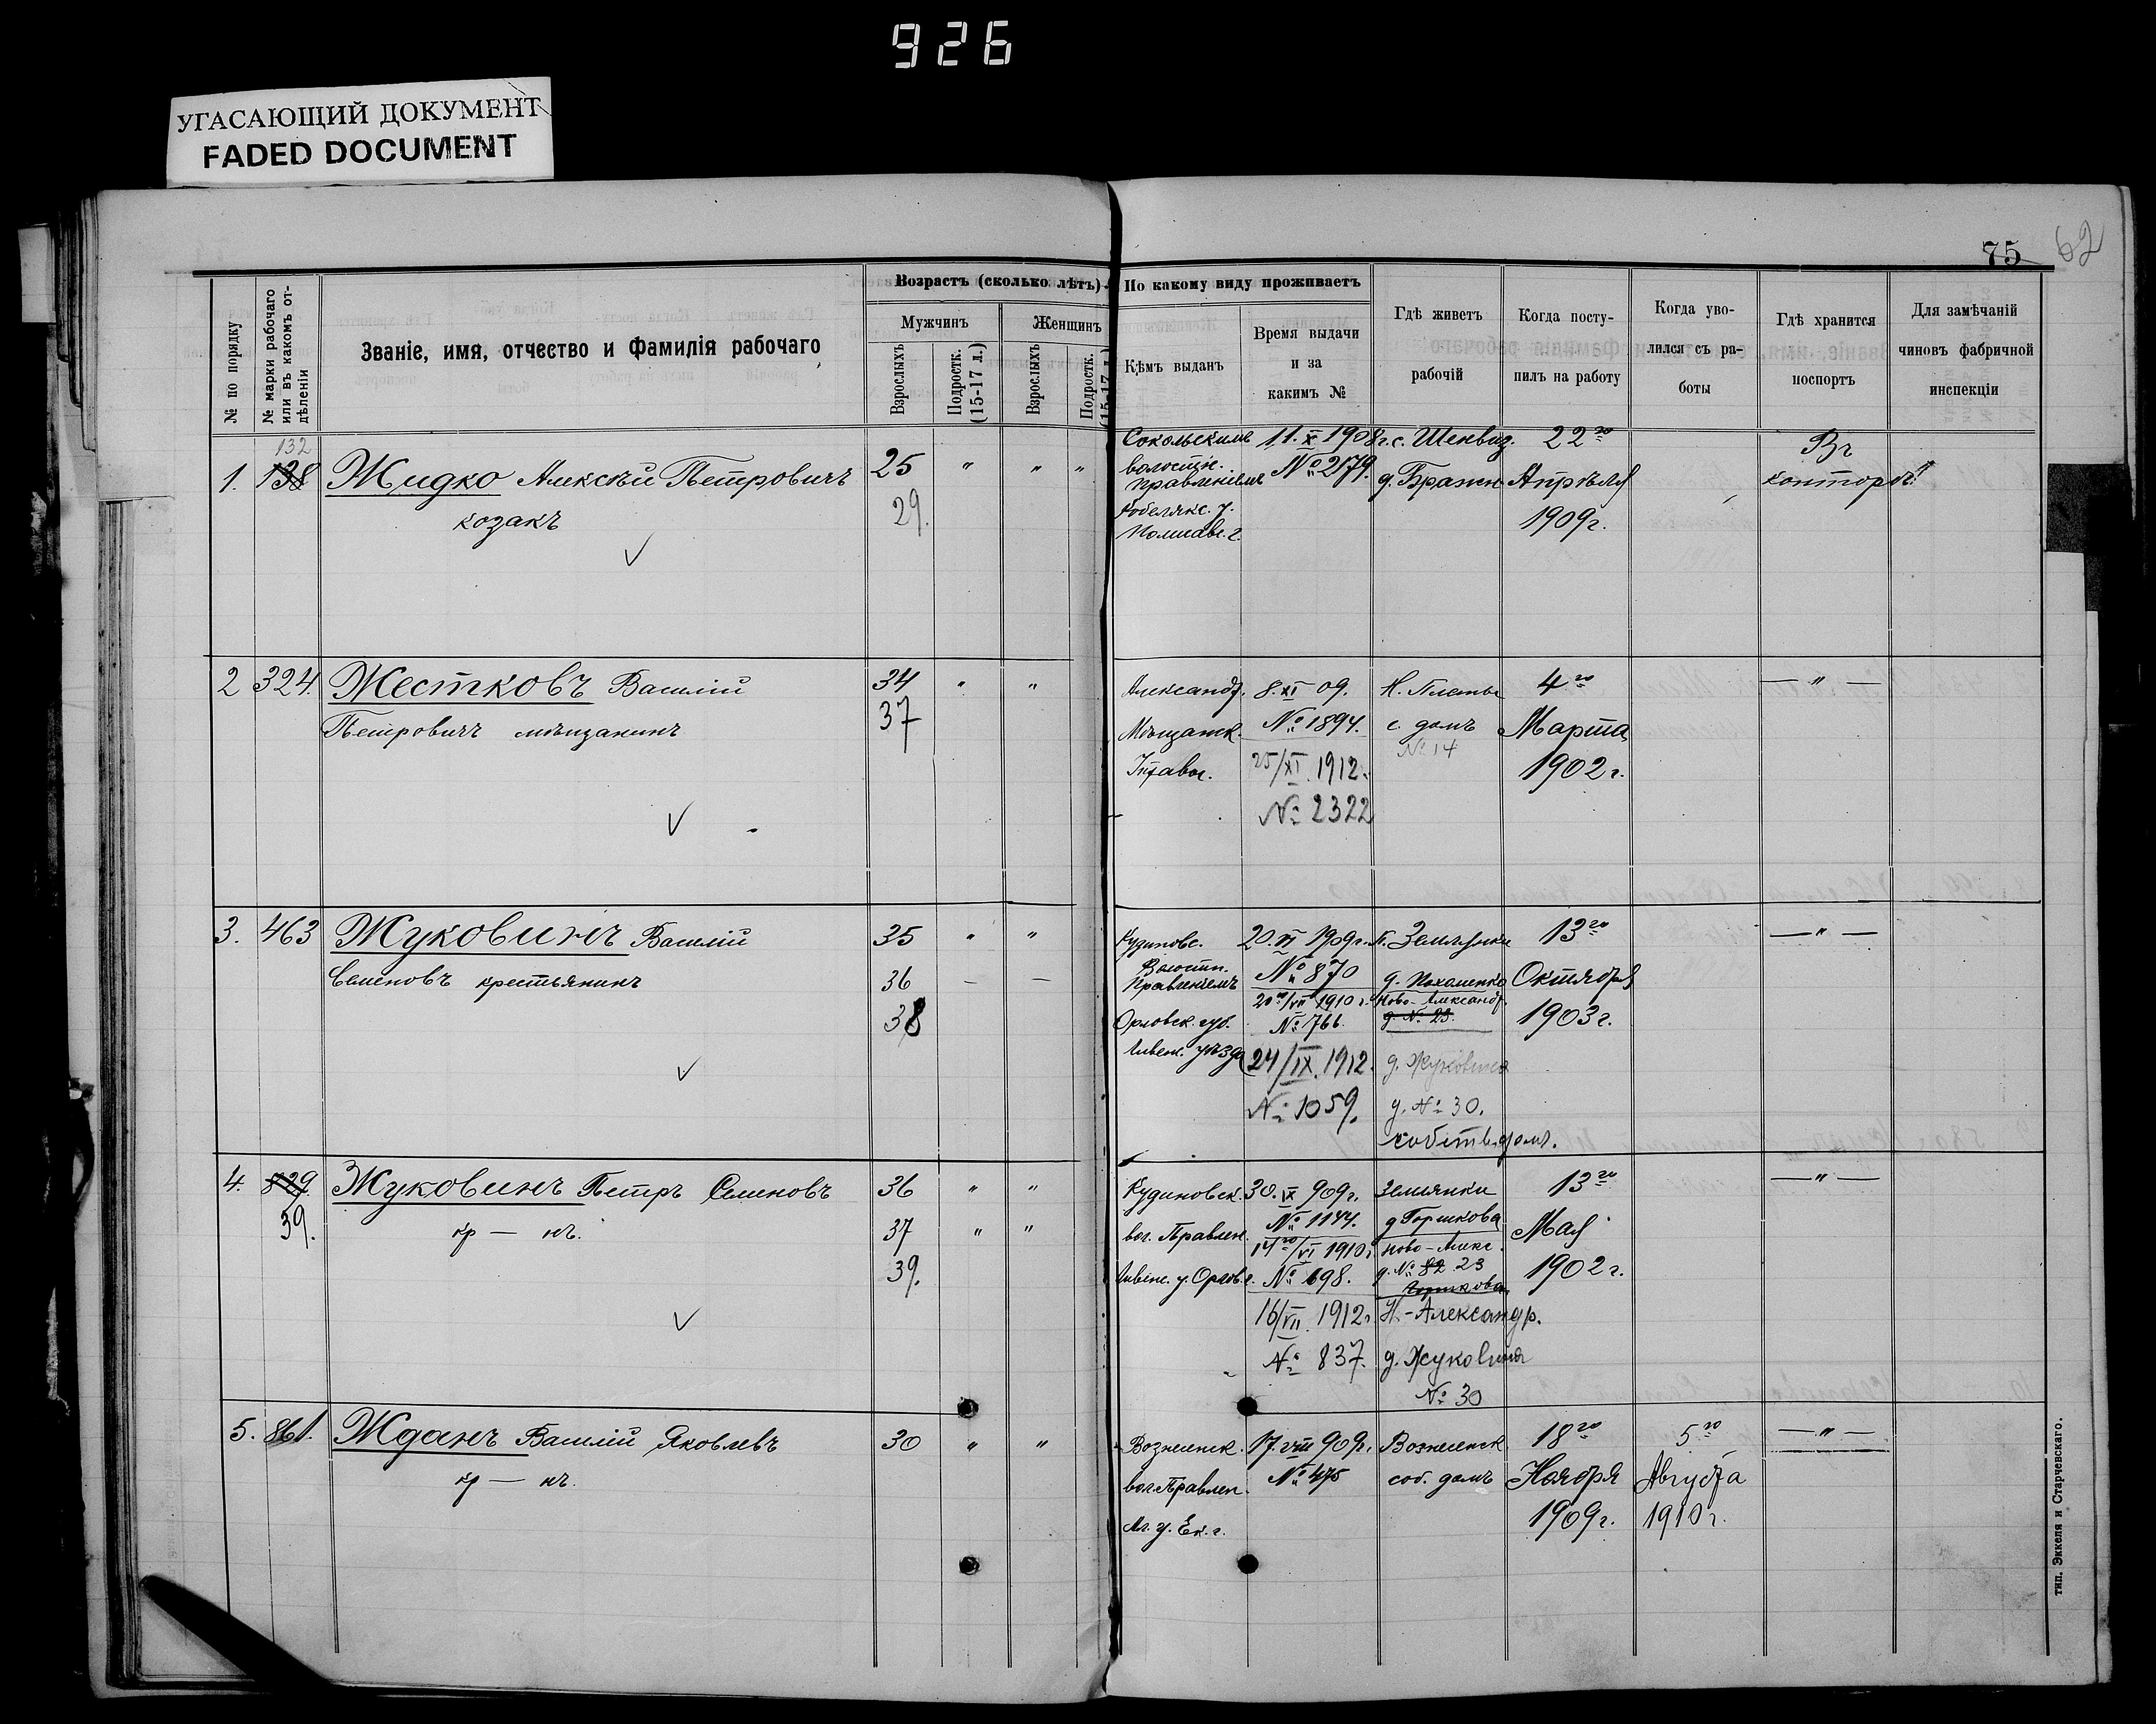 926
УГАСАЮЩИЙ ДОКУМЕНТ
FADED DOCUMENT
75 62
№ по порядку
№ марки рабочаго или въ какомъ отдѣленіи
Званіе, имя, отчество и фамилія рабочаго
Возрастъ (сколько лѣтъ)
Мужчинъ
Женщинъ
Взрослыхъ
Подростк. (15-17 л.)
Взрослыхъ
Подростк. (15-17 л.)
По какому виду проживаетъ
Кѣмъ выданъ
Время выдачи
и за
какимъ №
Гдѣ живетъ
рабочій
Когда посту-
пилъ на работу
Когда уво-
лился съ ра-
боты
Гдѣ хранится
поспортъ
Для замѣчаній
чиновъ фабричной
инспекціи
132
1. 138 Жидко Алексѣй Петровичъ 25 " " "
козакъ 29.
Сокольскимъ
волостн.
правленіемъ
Кобелякс. у.
Полтавс. г.
11. X 1908 г.
№ 2179.
с. Шенвиз.
22го
Апрѣля
1909 г.
Въ
конторѣ
2 324. Жестковъ Василій 34 " "
Петровичъ мѣщанинъ 37
Александр.
Мѣщанск.
Управы.
8. XI 09.
№ 1894.
25/XI. 1912.
№ 2322
с. домъ
№ 14
4го
Марта
1902 г.
— " —
3. 463 Жуковинъ Василій 35 " "
Семеновъ крестьянинъ 36 — —
38
Кудиновс.
Волостн.
Правленіемъ
Орловск. губ.
Ливен. уѣзда
20. VI 1909 г.
№ 870
20го/VII 1910 г.
№ 766.
24/IX. 1912.
№ 1059.
п. Землянки
Ново-Александр.
д. № 23.
д. Жуковина
д. № 30.
собств. домъ.
13го
Октября
1903 г.
— " —
4. 829. Жуковинъ Петръ Семеновъ 36 " "
39. кр — нъ. 37 " "
39.
Кудиновск.
вол. Правлен.
Ливен. у. Орлов. г.
30. IX 909 г.
№ 1144.
14го/VI 1910 г.
№ 698.
16/VII. 1912 г.
№ 837.
Землянки
д Горшкова
Ново-Алекс.
д. № 82 23
Горшкова
Н.-Александр.
д. Жуковина
№ 30
13го
Мая
1902 г.
— " —
5. 861. Жданъ Василій Яковлевъ 30 " "
кр — нъ.
Вознесенск.
вол. Правлен.
Ал. у. Ек. г.
17. VIII 909 г.
№ 475
Вознесенск
соб. домъ
18го
Ноября
1909 г.
5го
Августа
1910 г.
— " —
тип. Эккеля и Старчевскаго.